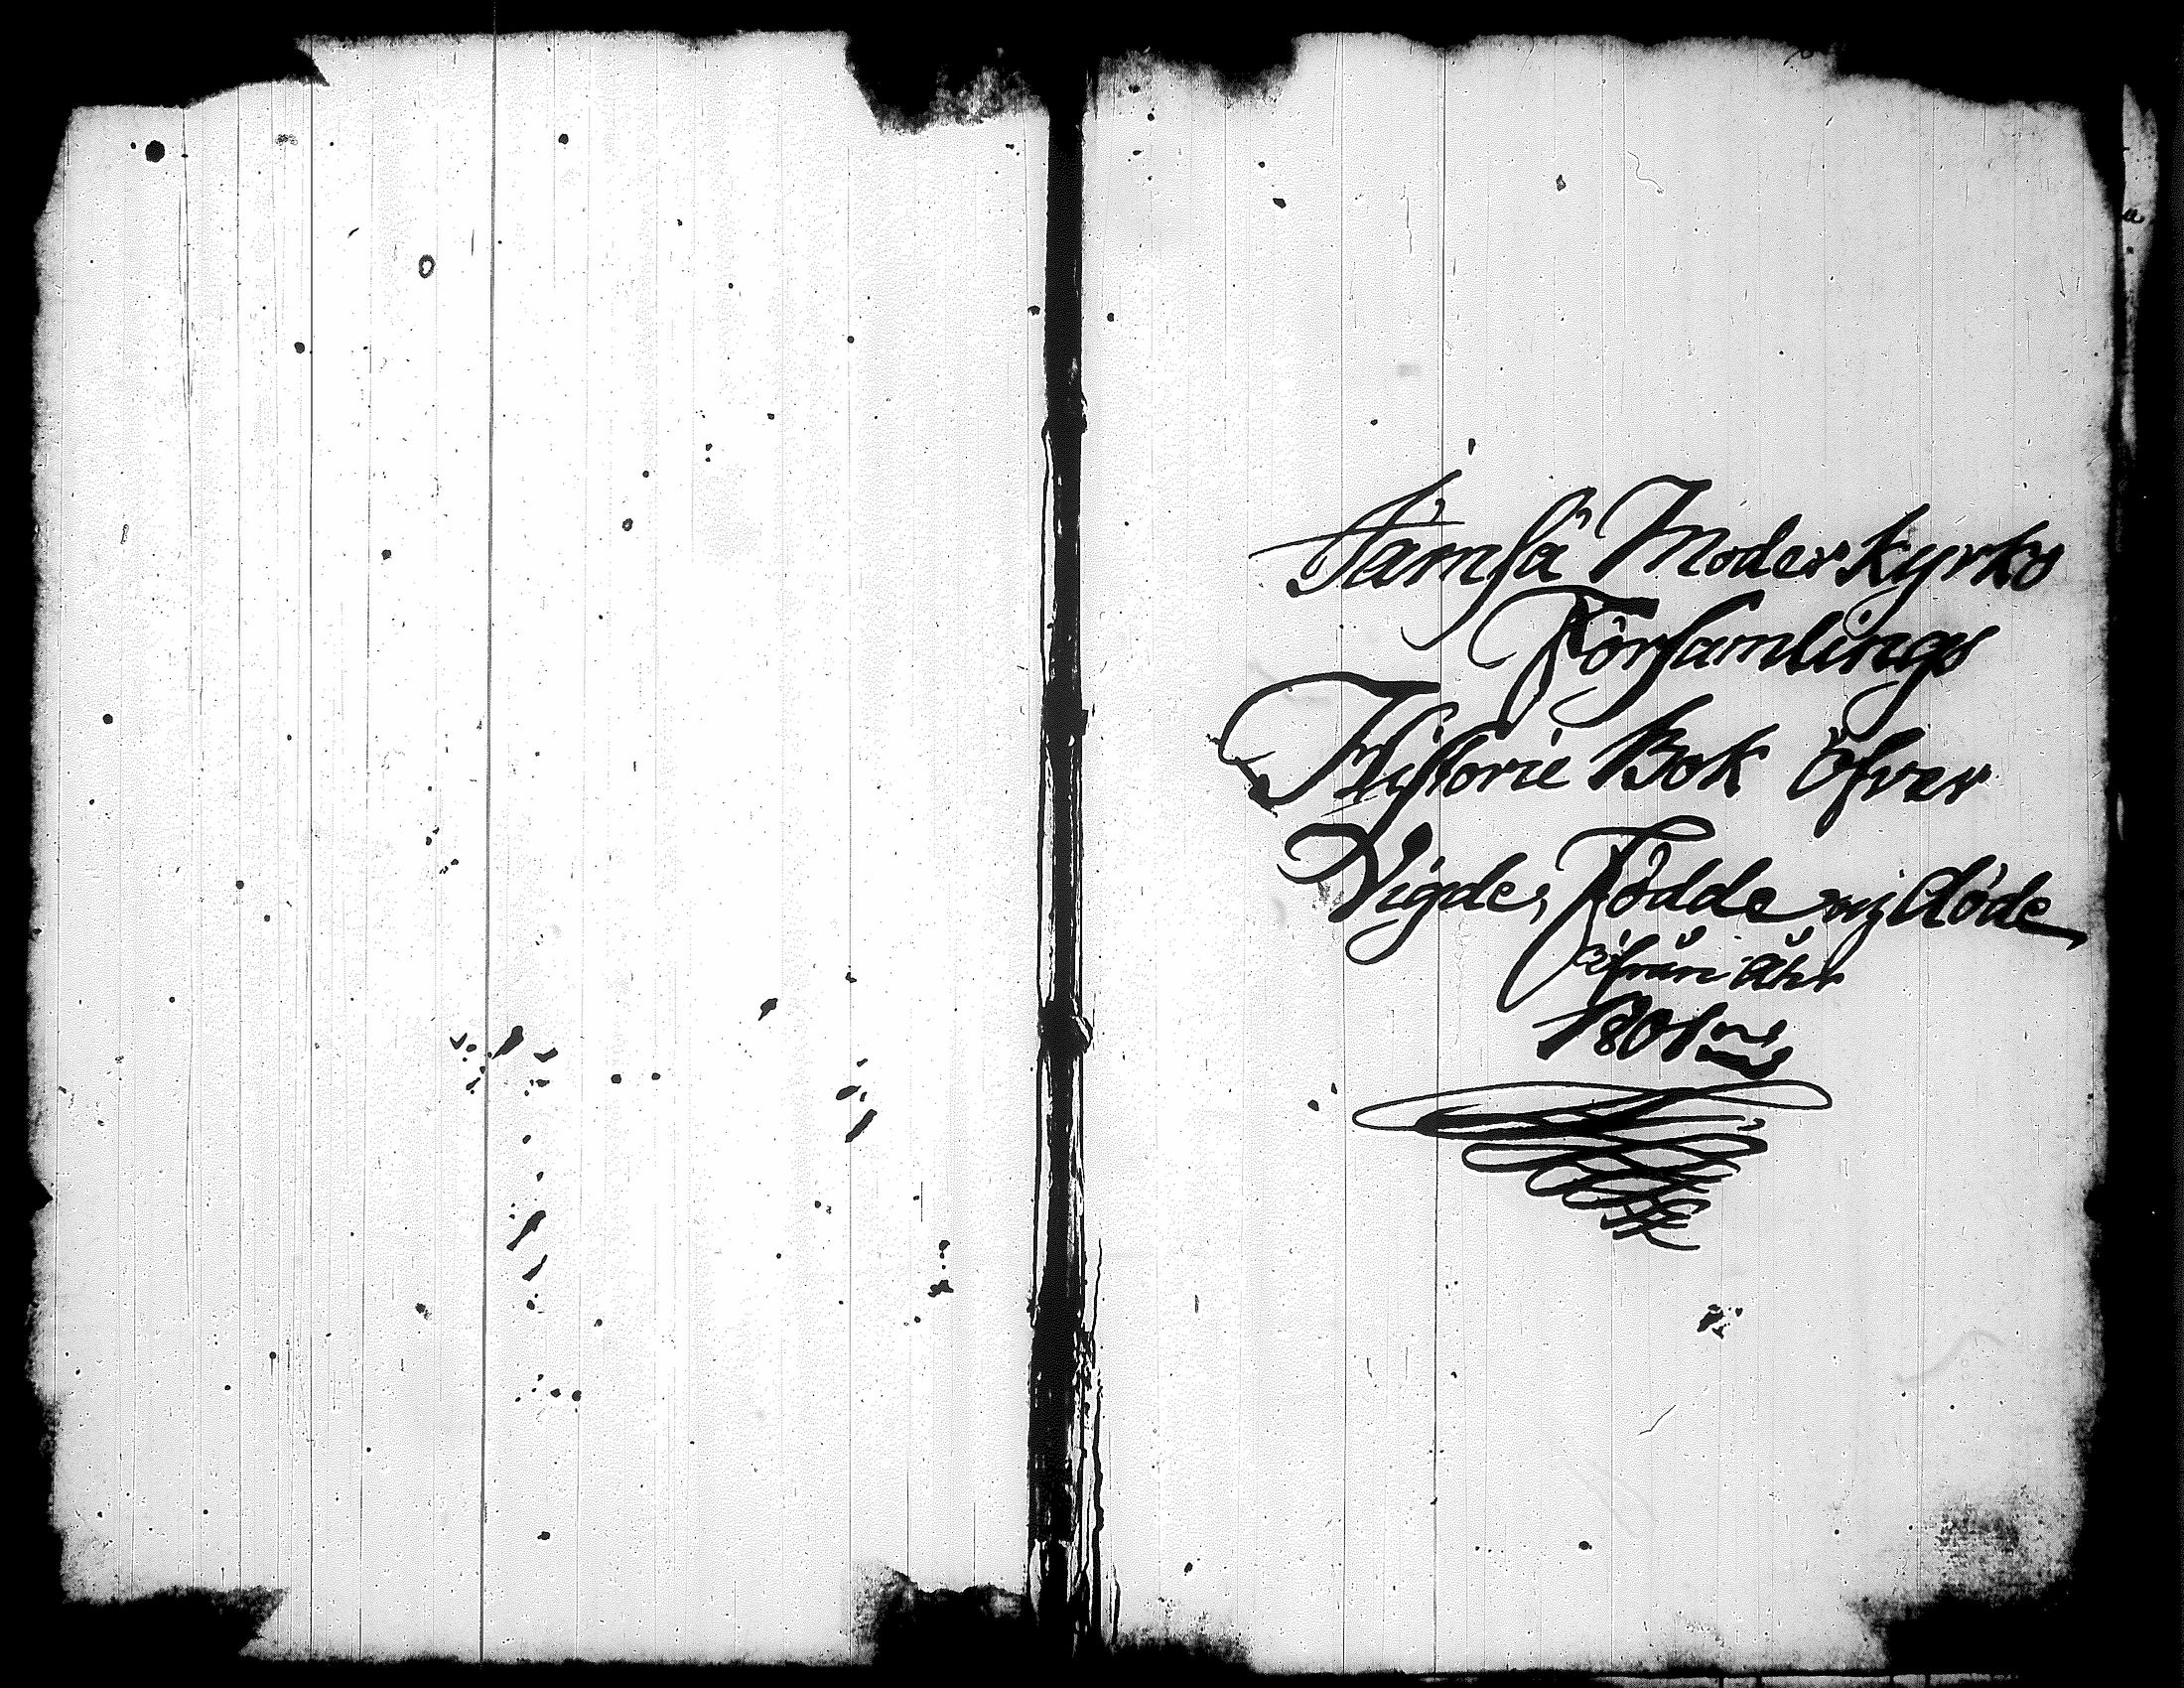 Jämsä Moderkyrko
Församlings
Historie Bok öfver
Vigde, Födde och döde
ifrån åhr
1801